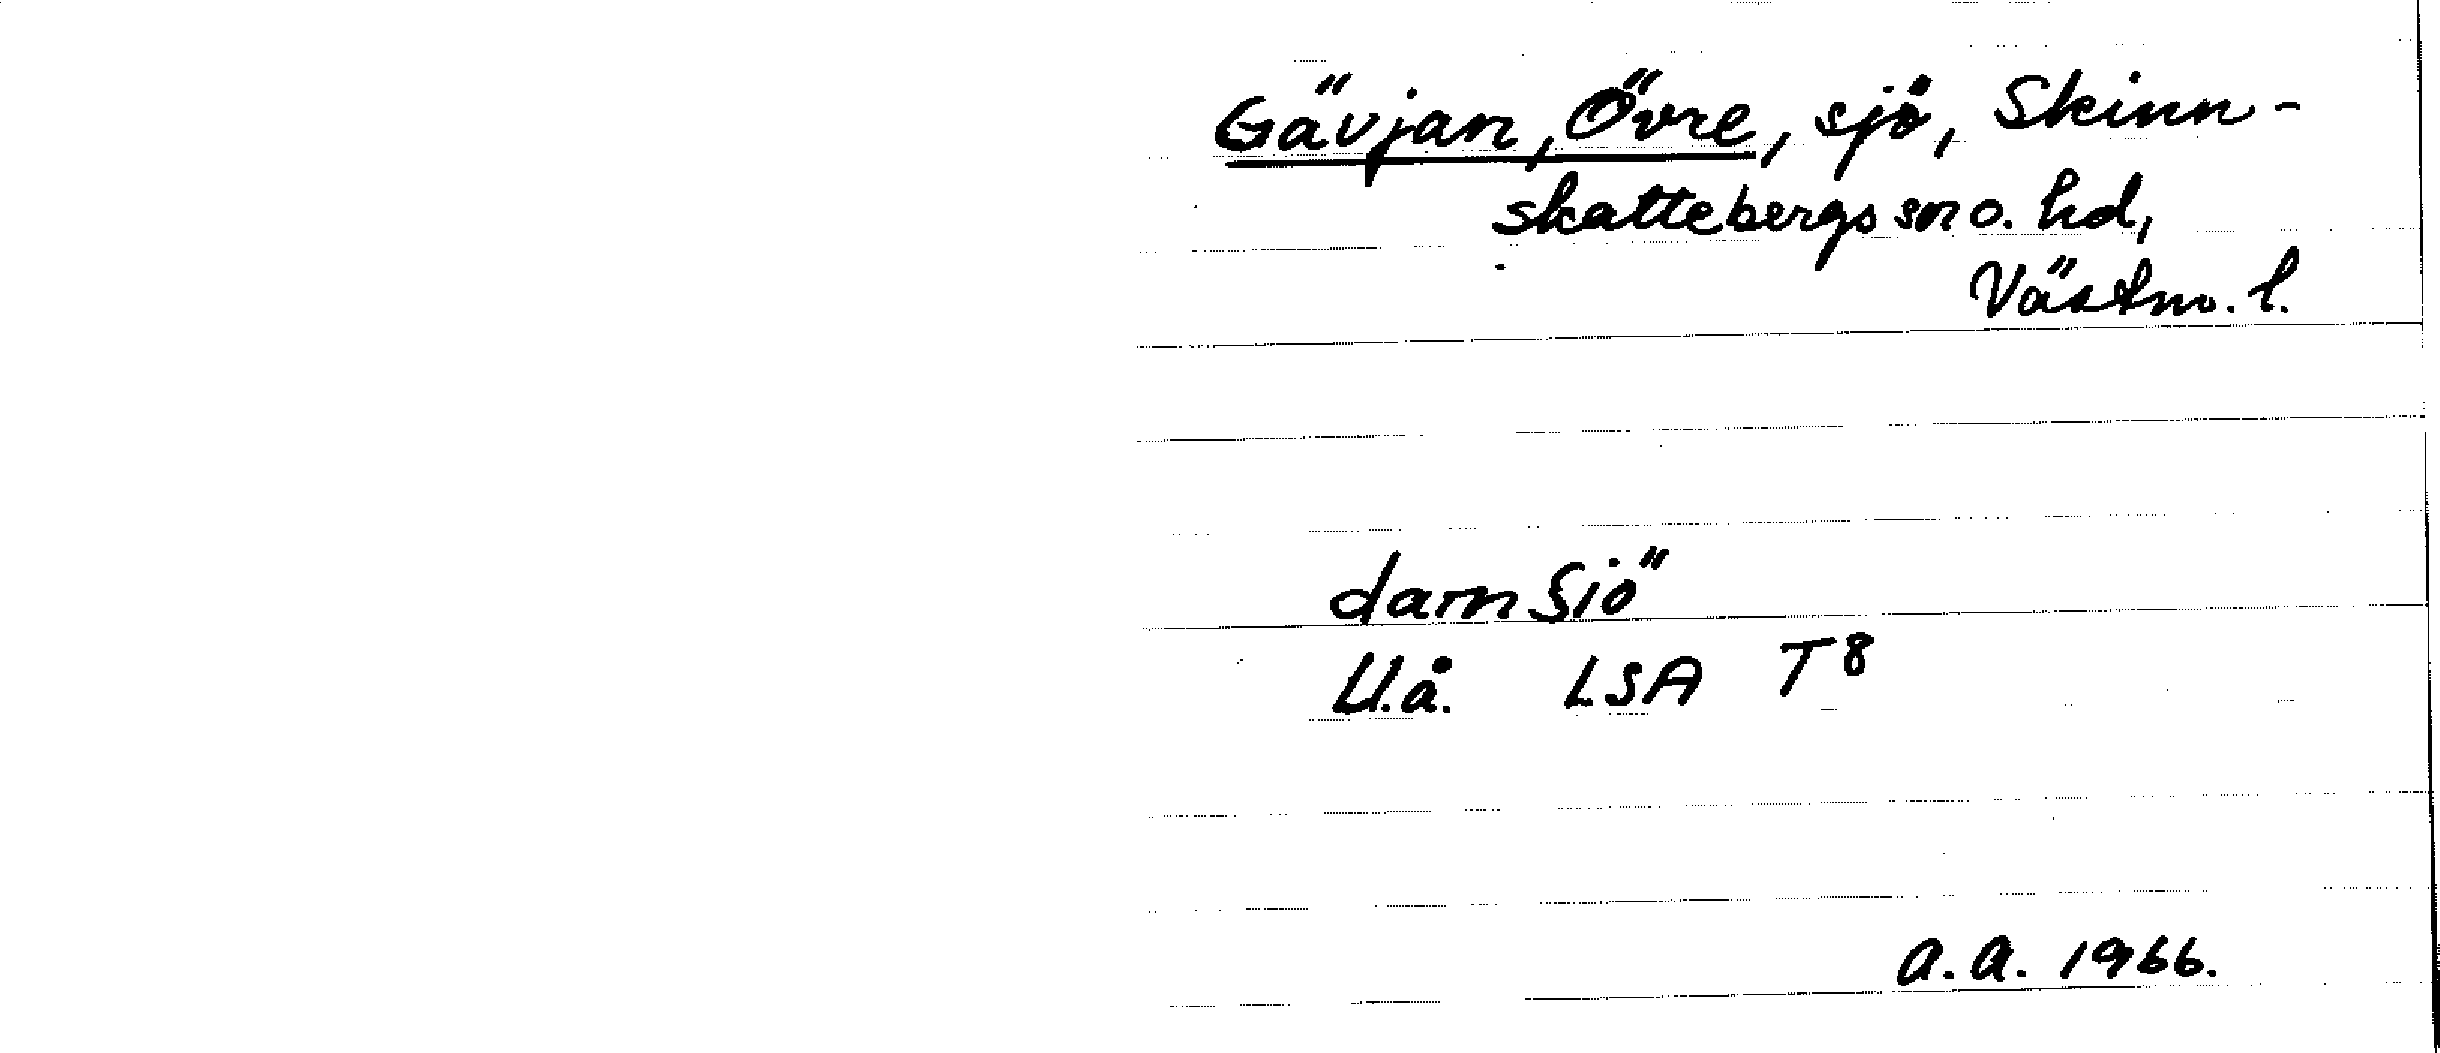 Gävjan, Övre, sjö, Skinn-
skattebergs sn o. hd,
Västm. l.
dam Siö
U.å. LSA T 8
A.A. 1966.